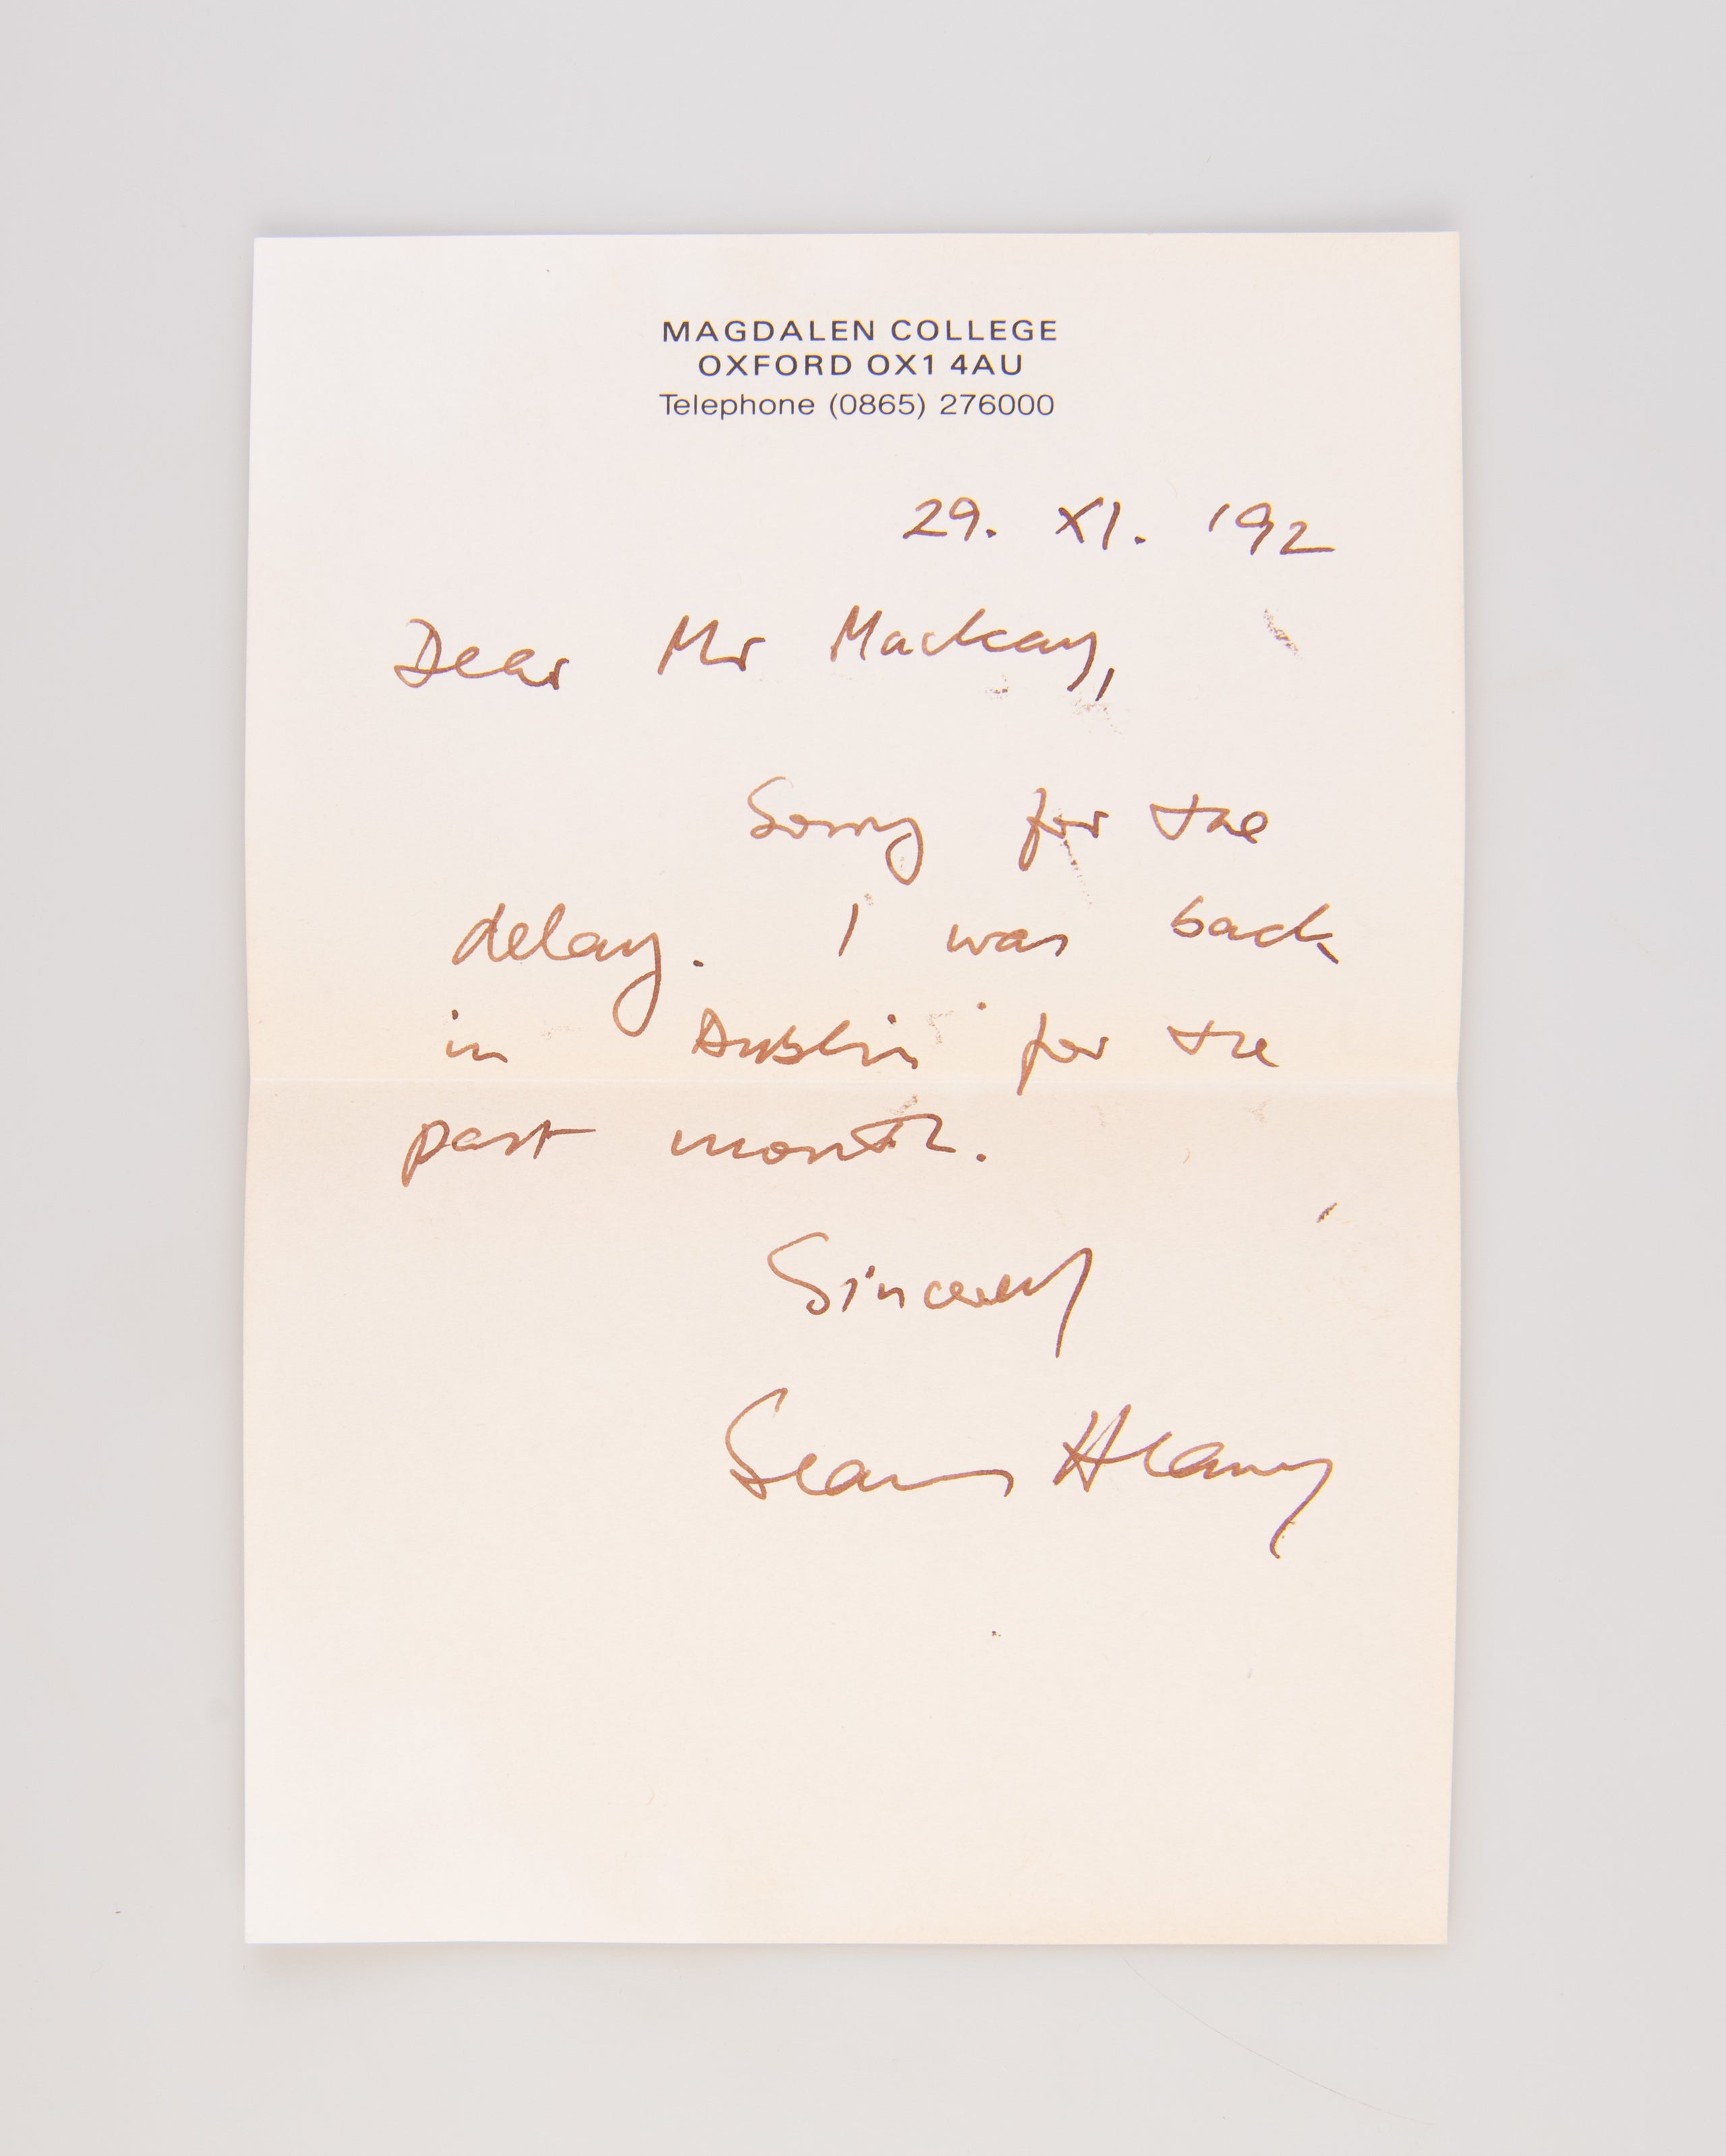 MAGDALEN COLLEGE
OXFORD OX1 4AU
Telephone (0865) 276000
29. XI. '92
Dear Mr Mackay,
Sorry for the
delay. I was back
in Dublin for the
past month.
Sincerely
Seamus Heaney